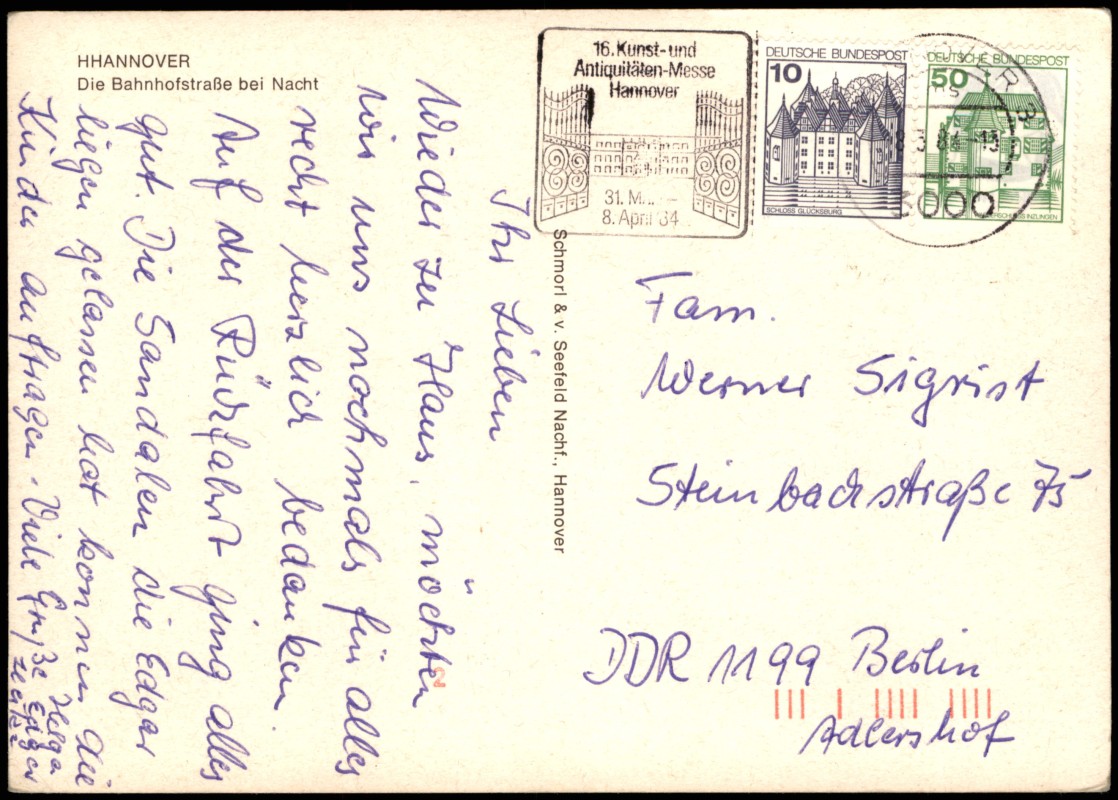 HHANNOVER
Die Bahnhofstraße bei Nacht
Ihr Lieben
Wieder zu Haus, möchten
wir uns nochmals für alles
recht herzlich bedanken.
Auf der Rückfahrt ging alles
gut. Die Sandalen die Edgar
liegen gelassen hat können die
Kinder auftragen. Viele Grüße Helga
Edgar
Schmorl & v. Seefeld Nachf., Hannover
16. Kunst- und
Antiquitäten-Messe
Hannover
31. M
8. April 84
DEUTSCHE BUNDESPOST
10
SCHLOSS GLÜCKSBURG
DEUTSCHE BUNDESPOST
50
INZLINGEN
3000
Fam.
Werner Sigrist
Steinbachstraße 75
DDR 1199 Berlin
Adlershof
2